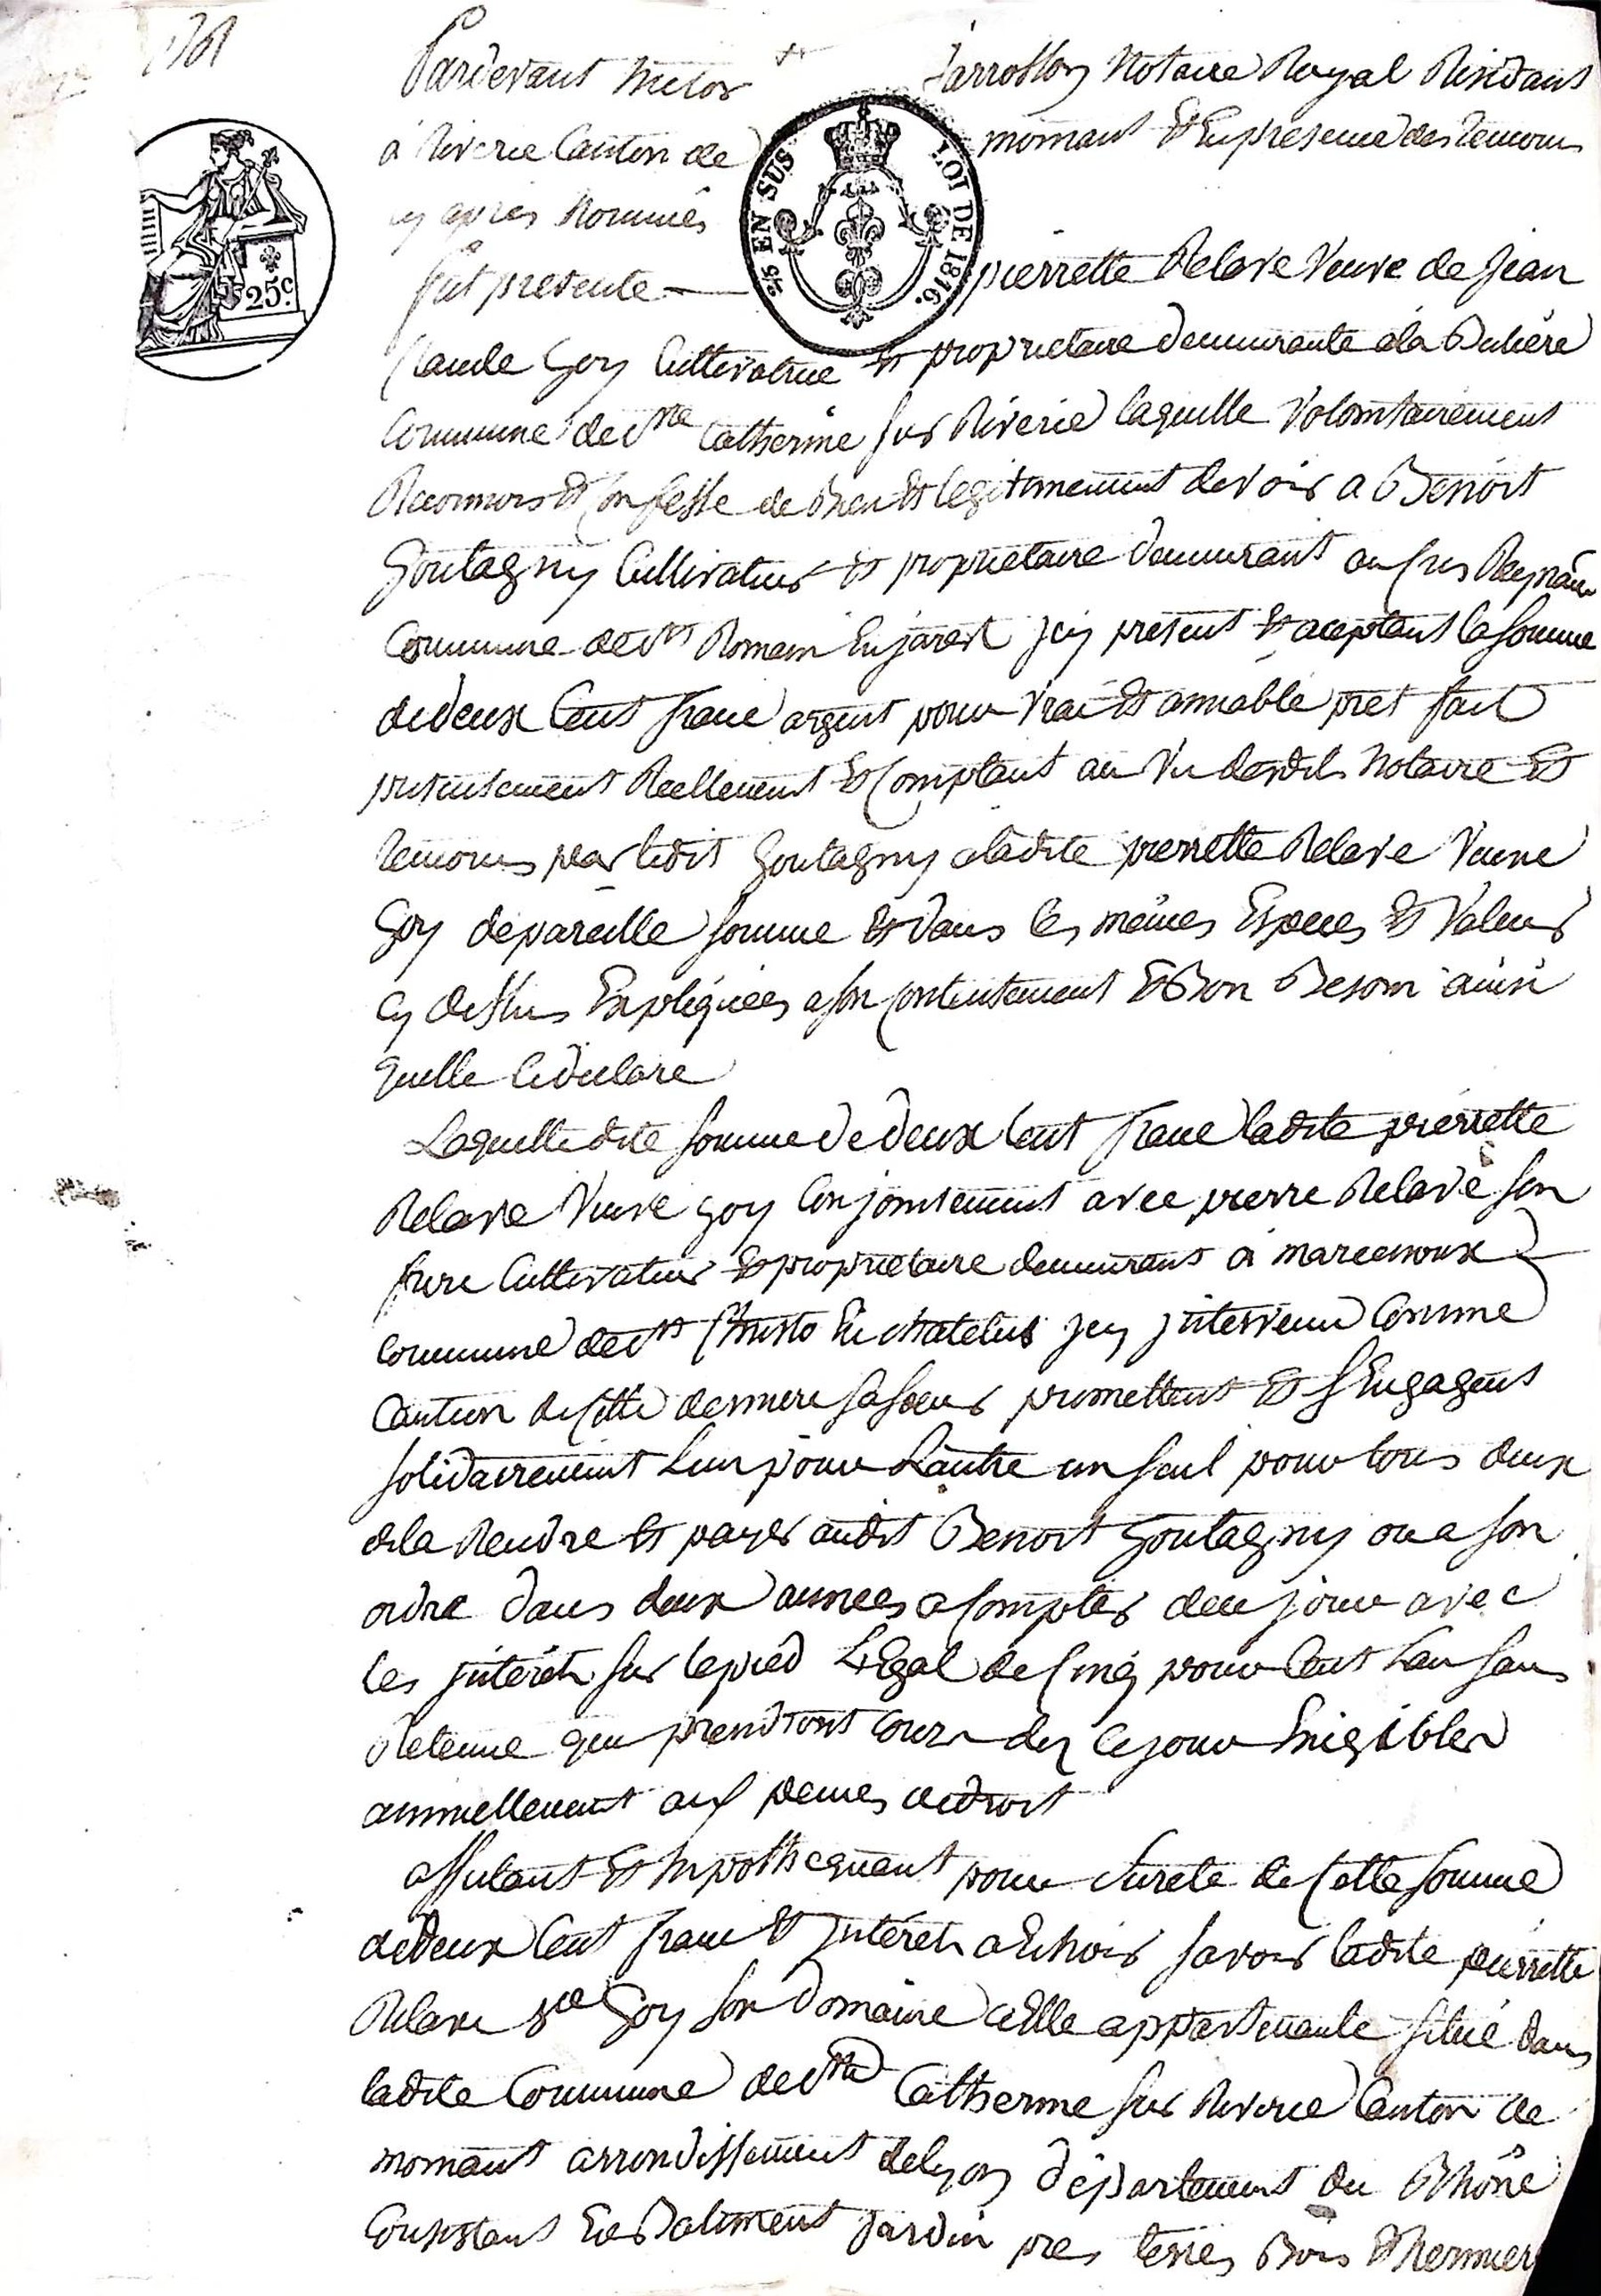 Pardevant Victor Jarrosson Notaire Royal Residant
à Riverie Canton de mornant Et Enpresence des temoins
cy après Nommés
fut presente pierrette Relave Veuve de Jean
Claude Goy Cultivatrice Et proprietaire demeurante ala
commune de Ste Catherine sur Riverie laquelle Volontairement
Reconnois Et Confesse de bien Et legitimement devoir a Benoit
Goutagny Cultivateur Et proprietaire demeurant au
Commune de St Romain En jarest Jcy present Et aceptant la somme
de deux Cent franc argent pour Vrai Et amiable prêt fait
presentement Reellement Et Comptant au Vu desdits Notaire Et
temoins par ledit Goutagny aladite pierrette Relave Veuve
Goy de pareille somme Et dans les mêmes Especes Et Valeurs
cy dessus Expliquées a son Contentement Et Bon Besoin ainsi
quelle le declare
Laquelle dite somme de deux Cent franc ladite pierrette
Relave Veuve Goy Conjointement avec pierre Relave son
frere Cultivateur Et proprietaire demeurant à marcenoux
commune de St Christo En chatelus Jcy Jntervenu Comme
Caution de Cette derniere sa soeur promettent Et S'Engagent
solidairement Lun pour Lautre un seul pour tous deux
dela Rendre Et payer audit Benoit Goutagny ou a son
ordre dans deux années a Compter de ce jour avec
les Jntérêts sur le pied Légal de Cinq pour Cent Lan sans
Retenue qui prendront cours des ce jour Exigibles
annuellement aux peines de droit
affectant Et hypothequant pour sureté de Cette somme
de deux Cent franc Et Jntérêts a Echoir savoir ladite pierrette
Relave Ve Goy son domaine aElle appartenante situé dans
ladite Commune de Ste Catherine sur Riverie Canton de
mornant arrondissement de Lyon département du Rhône
Consistant En Batiment Jardin pres terres Bois Et hermier
25c.
2/5 EN SUS LOI DE 1816.